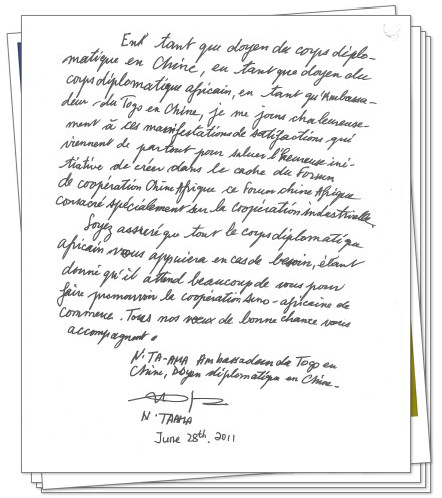 En tant que doyen du corps diplo-
matique en Chine, en tant que doyen du
corps diplomatique africain, en tant qu'Ambassa-
deur du Togo en Chine, je me joins chaleureuse-
ment à ces manifestations de satisfactions qui
viennent de partout pour saluer l'heureuse ini-
tiative de créer dans le cadre du Forum
de coopération Chine Afrique ce Forum chine Afrique
consacré spécialement sur la coopération industrielle.
Soyez assuré que tout le corps diplomatique
africain vous appuiera en cas de besoin, étant
donné qu'il attend beaucoup de vous pour
faire promouvoir la coopération sino-africaine de
commerce. Tous nos vœux de bonne chance vous
accompagnent.
N'TA-AMA Ambassadeur du Togo en
Chine, Doyen diplomatique en Chine-
N'TAAMA
June 28th. 2011